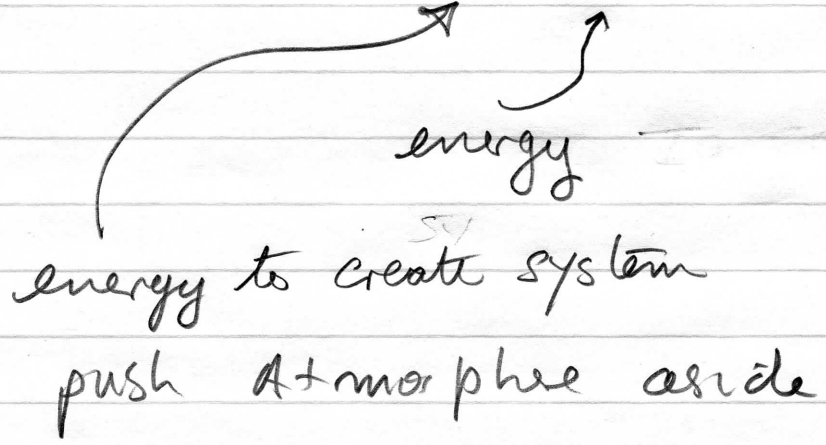 energy
energy to create system
push Atmorphee aside